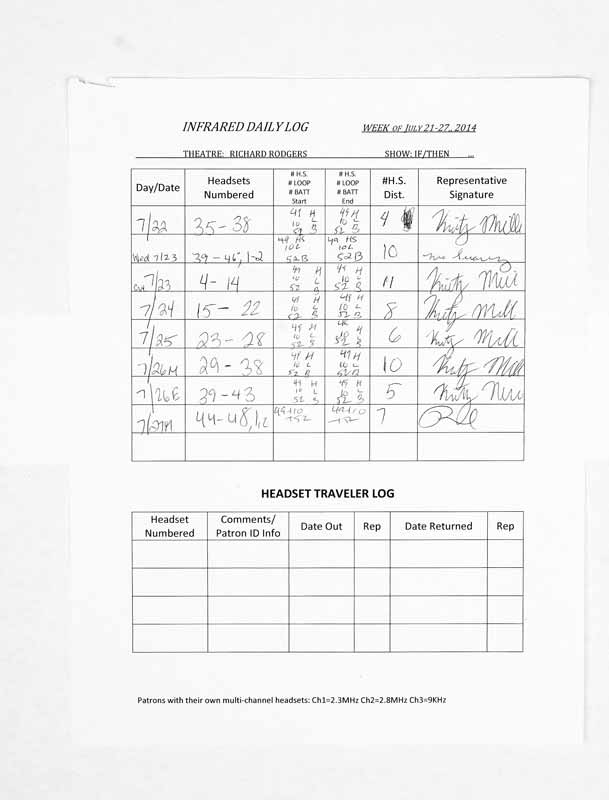 INFRARED DAILY LOG WEEK OF JULY 21-27, 2014
THEATRE: RICHARD RODGERS SHOW: IF/THEN
Day/Date Headsets Numbered # H.S. # LOOP # BATT Start # H.S. # LOOP # BATT End #H.S. Dist. Representative Signature
7/22 35-38 49 H 10 L 52 B 49 H 10 L 52 B 4
Wed 7/23 39-46, 1-2 49 HS 10L 52B 49 HS 10L 52B 10
7/23 4-14 49 H 10 L 52 B 49 H 10 L 52 B 11
7/24 15-22 49 H 10 L 52 B 49 H 10 L 52 B 8
7/25 23-28 49 H 10 L 52 B 6
7/26M 29-38 49 H 10 L 52 B 49 H 10 L 52 B 10
7/26E 39-43 49 H 10 L 52 B 49 H 10 L 52 B 5
7/27M 44-48, 1,2 49+10 52 49+10 52 7
HEADSET TRAVELER LOG
Headset Numbered Comments/ Patron ID Info Date Out Rep Date Returned Rep
Patrons with their own multi-channel headsets: Ch1=2.3MHz Ch2=2.8MHz Ch3=9KHz